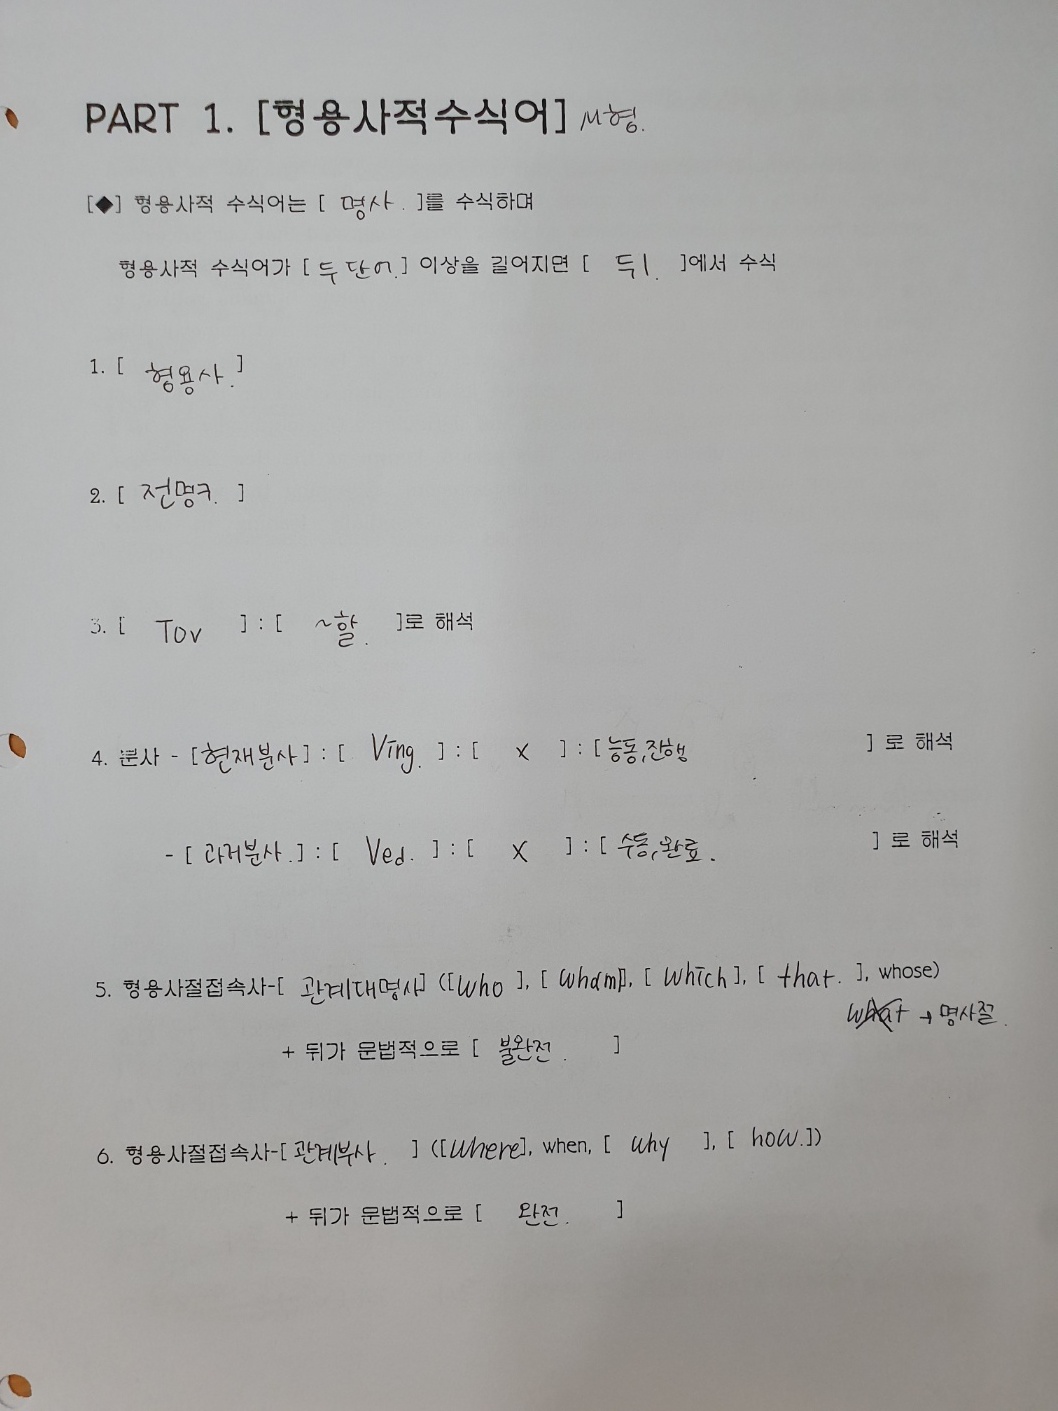 PART 1. [형용사적수식어] M형.
[◆] 형용사적 수식어는 [ 명사. ]를 수식하며
형용사적 수식어가 [ 두 단어. ] 이상을 길어지면 [ 뒤. ]에서 수식
1. [ 형용사. ]
2. [ 전명구. ]
3. [ Tov ] : [ ~할. ]로 해석
4. 분사 - [현재분사] : [ Ving. ] : [ x ] : [능동,진행 ] 로 해석
- [ 과거분사. ] : [ Ved. ] : [ X ] : [ 수동,완료. ] 로 해석
5. 형용사절접속사-[ 관계대명사] ([who ], [ whom], [ which ], [ that. ], whose)
what → 명사절.
+ 뒤가 문법적으로 [ 불완전. ]
6. 형용사절접속사-[ 관계부사. ] ([where], when, [ why ], [ how.])
+ 뒤가 문법적으로 [ 완전. ]